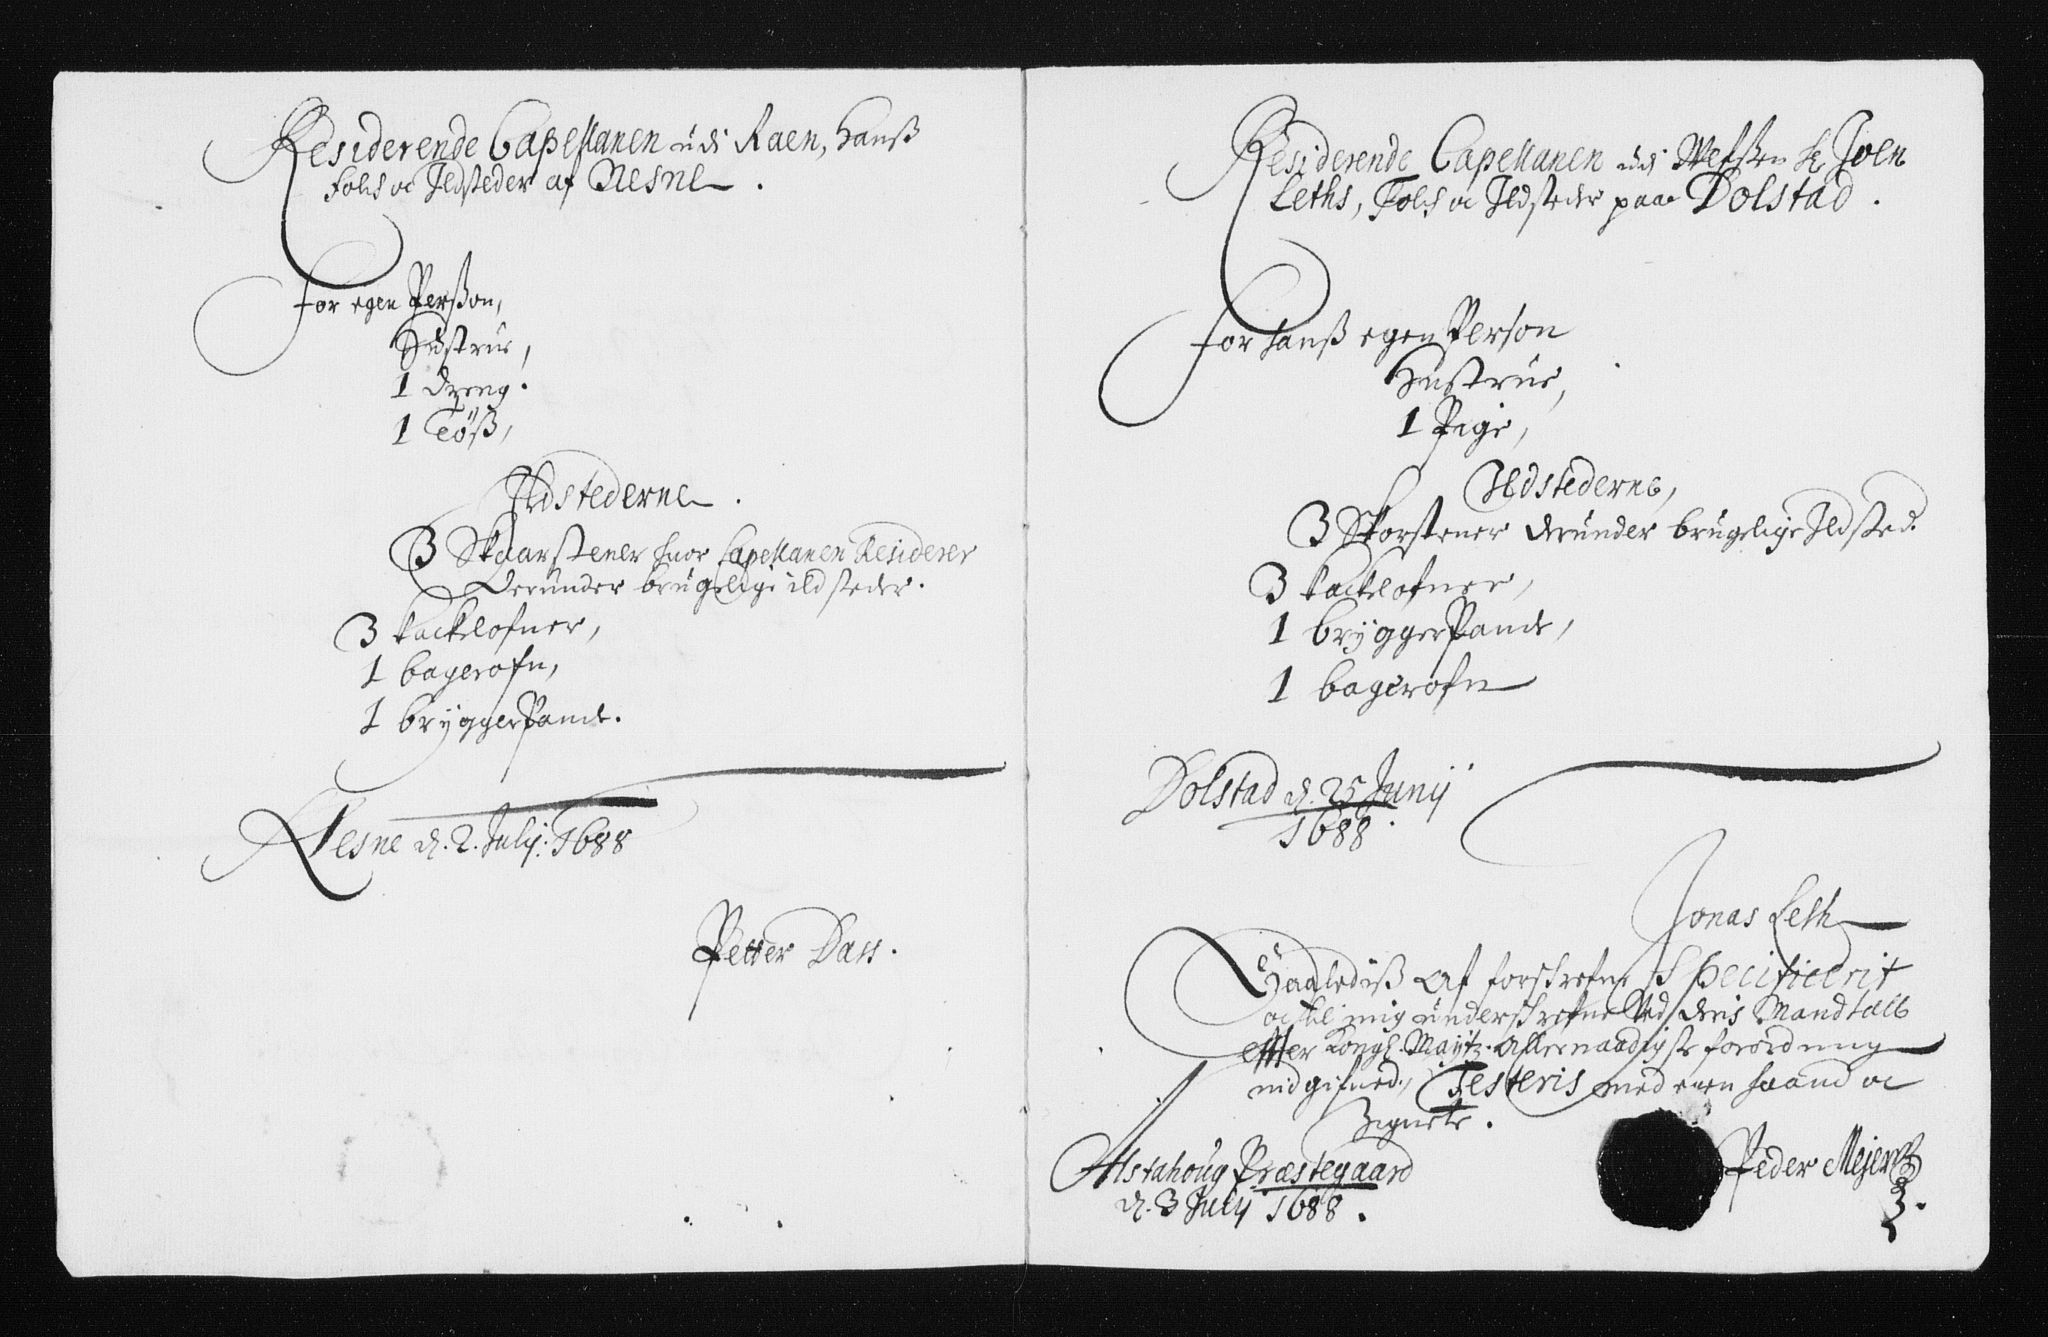 Residerende Capellanen udi Raen, Hanß
Folch oc Ildsteder af Nesne.
for egen Perßon,
Hustrue,
1 dreng.
1 Töß,
Ildstederne.
3 Skaarstener huor Capellanen Residerer
derunder brugelige ildsteder.
3 kackelofner,
1 bagerofn,
1 bryggerPande.
Nesne d. 2. Julij: 1688
Petter Dass.
Residerende Capellanen udi Wefsen Hr Joen
Leths, Folch oc Ildsteder paa Dolstad.
for hanß egen Person
Hustrue,
1 Pige,
Ildstederne,
3 Skorstener derunder brugelige Ildsted.
3 kackelofner,
1 bryggerPande,
1 bagerofn
Dolstad d. 25 Junij
1688.
Jonas Leth
Saalediß Af forschrefne Specificerit
oc til mig underschrefne Ved deris Mandtall
effter Kongl. Maytz. Allernaadigste forordning
indgifned, Testeris med egen haand oc
Zignete.
Alstahoug Præstegaard
d. 3 Julij 1688.
Peder Mejer